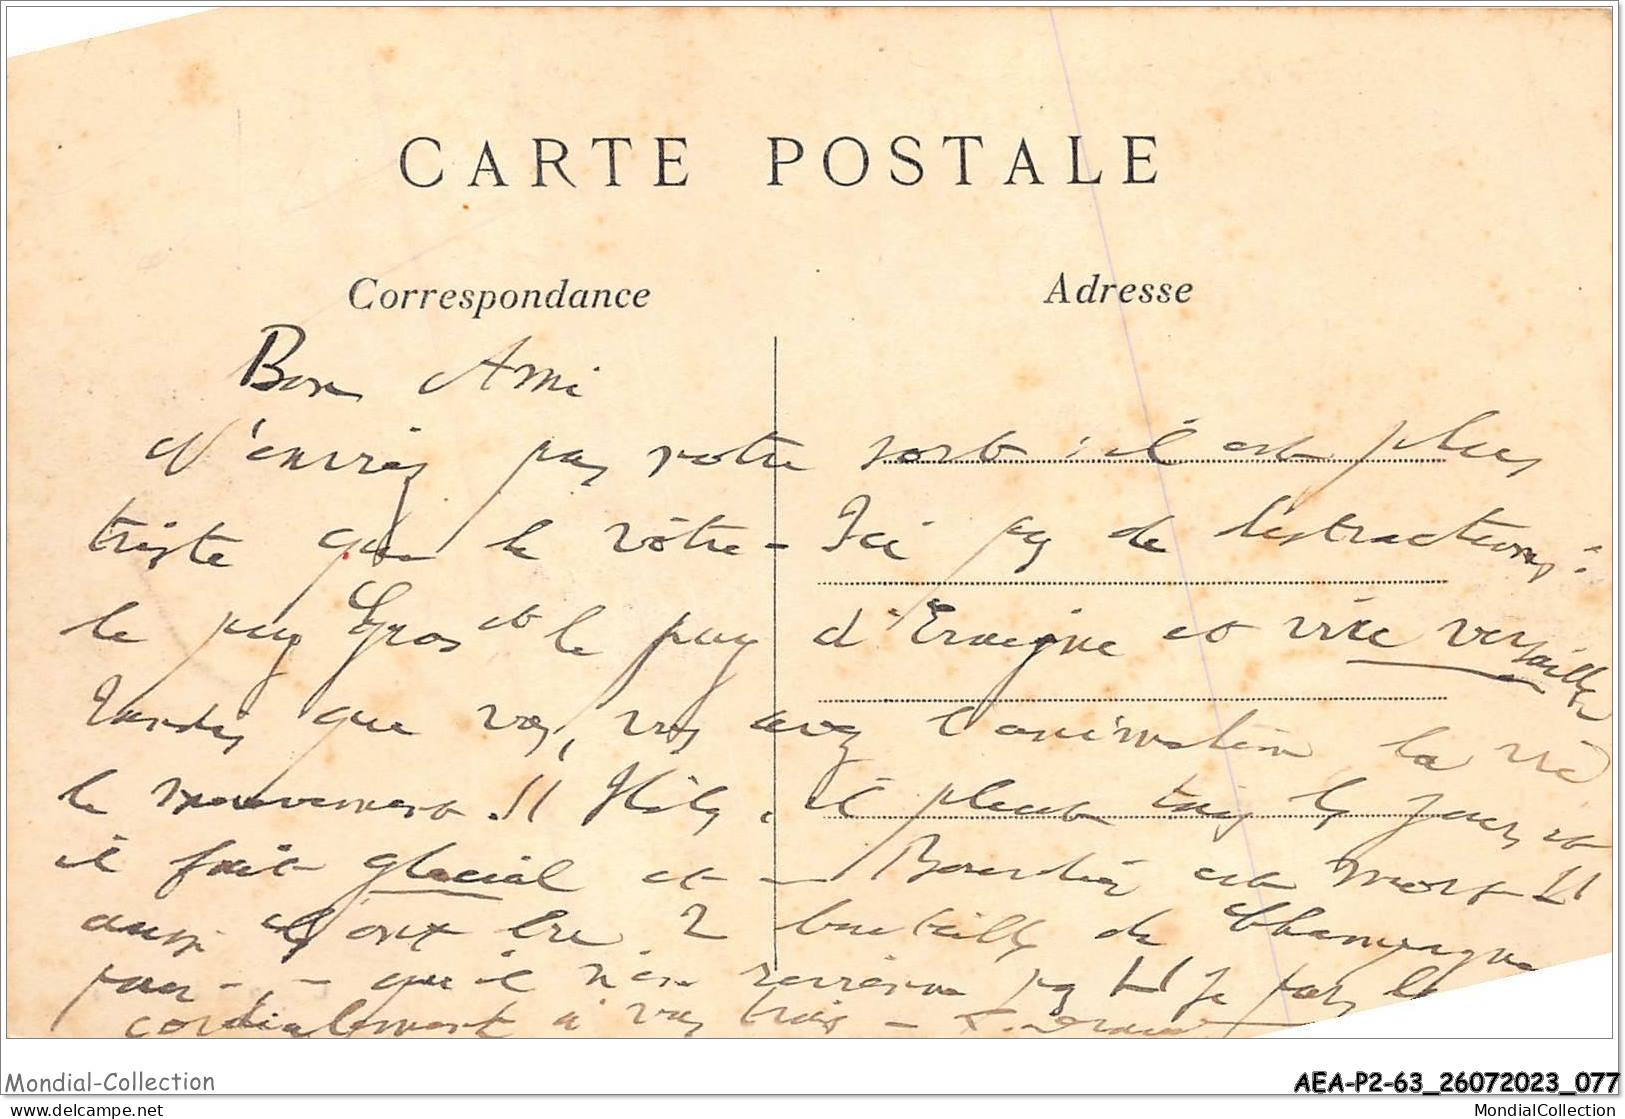 CARTE POSTALE
Correspondance
Adresse
Bon Ami
N'enviez pas votre sort : il est plus
triste que le vôtre - Ici pas de distractions :
le puy Gros et le puy d' et vive Versailles
Tandis que vos, vous avez l'animation la vie
le mouvement !! Hélas, il pleut tous les jours et
il fait glacial et - est mort !!
aussi ils ont bu 2 bouteilles de Champagne
pour - - qu'il n'en revienne pas !! Je pars le
cordialement à vous trois -
Mondial-Collection
AEA-P2-63_26072023_077
https://www.delcampe.net
MondialCollection